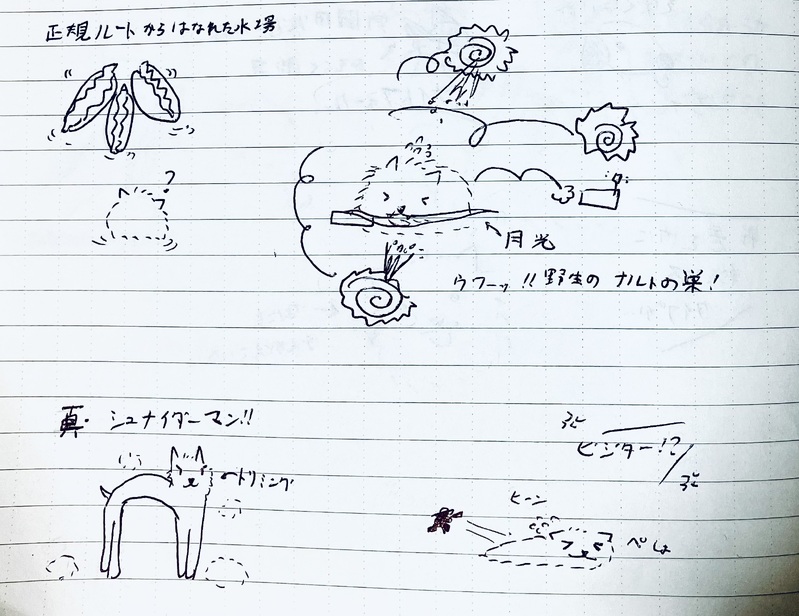 正規ルートからはなれた水場
?
月光
ウフーッ!!野生のナルトの巣!
真・シュナイダーマン!!
トリミング
ビジター!?
ヒーン
ぺしょ